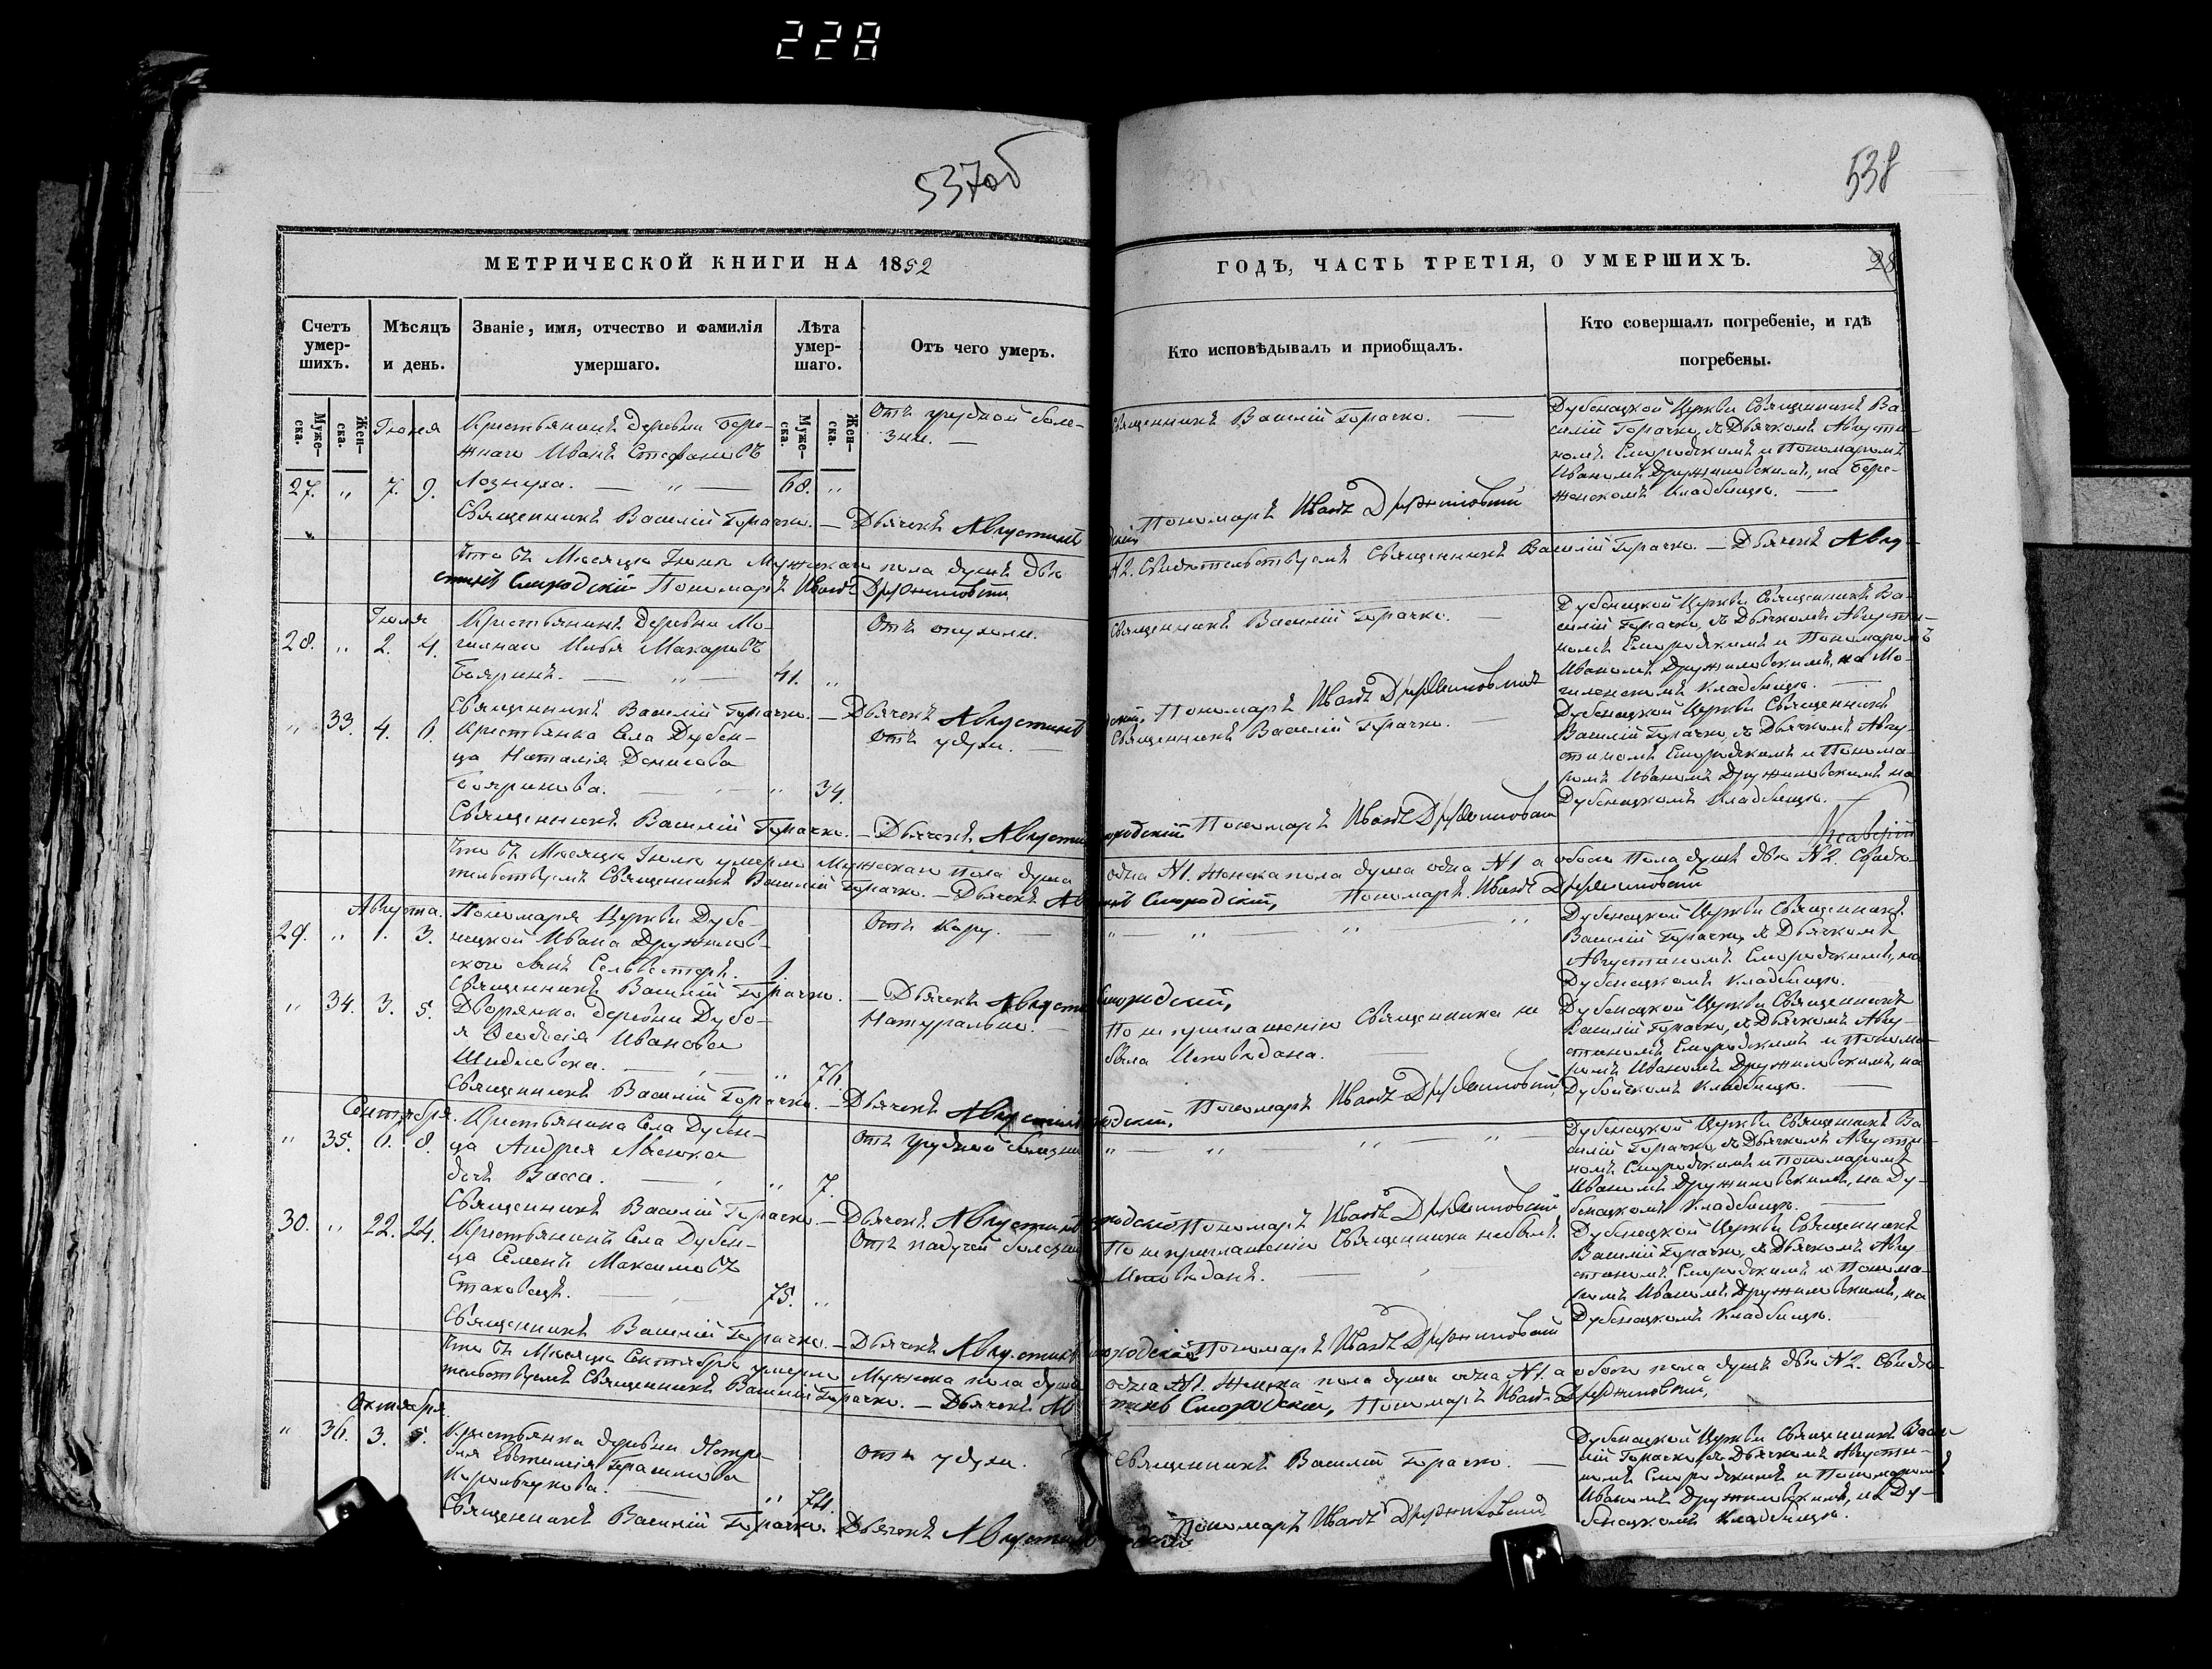 228
537об
538
МЕТРИЧЕСКОЙ КНИГИ НА 1852
ГОДЪ, ЧАСТЬ ТРЕТІЯ, О УМЕРШИХЪ.
28
Счетъ умер-шихъ.
Мѣсяцъ и день.
Званіе, имя, отчество и фамилія умершаго.
Лѣта умер-шаго.
Отъ чего умеръ.
Кто исповѣдывалъ и приобщалъ.
Кто совершалъ погребеніе, и гдѣ погребены.
Муже-ска.
Жен-ска.
Муже-ска.
Жен-ска.
Іюня
27. " 7. 9.
Крестьянинъ деревни Бере-
жнаго Иванъ Стефановъ
Лознуха. — " — 68. "
Отъ грудной боле-
зни. —
Священникъ Василій Горачко. —
Дубенецкой Церкви Священникъ Ва-
силій Горачко, съ Дьячкомъ Августи-
номъ Смородскимъ и Пономаремъ
Иваномъ Дружиловскимъ, на Бере-
женскомъ Кладбищѣ. —
Священникъ Василій Горачко. — Дьячекъ Августинъ
Пономарь Иванъ Дружиловскій
Что въ Месяцѣ Іюнѣ Мужескаго пола душъ двѣ
№2. Свидѣтельствуемъ Священникъ Василій Горачко. — Дьячекъ Авгу-
стинъ Смородскій Пономарь Иванъ Дружиловскій
Іюля
28. " 2. 4.
Крестьянинъ Деревни Мо-
гилнаго Илья Макаровъ
Бояринъ. — " — 41. "
Отъ опухоли.
Священникъ Василій Горачко. —
Дубенецкой Церкви Священникъ Ва-
силій Горачко, съ Дьячкомъ Августи-
номъ Смородскимъ и Пономаремъ
Иваномъ Дружиловскимъ, на Мо-
гиленскомъ Кладбищѣ. —
Священникъ Василій Горачко. — Дьячекъ Августинъ
Пономарь Иванъ Дружиловскій
" 33. 4. 6.
Крестьянка Села Дубен-
ца Наталія Денисова
Бояринова. — " 34.
Отъ удухи. —
Священникъ Василій Горачко. —
Дубенецкой Церкви Священникъ
Василій Горачко, съ Дьячкомъ Авгу-
стиномъ Смородскимъ и Понома-
ремъ Иваномъ Дружиловскимъ на
Дубенецкомъ Кладбищѣ. —
Священникъ Василій Горачко. — Дьячекъ Августинъ
Смородскій Пономарь Иванъ Дружиловскій
Что въ Месяцѣ Іюлѣ умерло Мужескаго пола душа
одна №1. Женска пола душа одна №1 а обоего Пола душъ двѣ №2. Свидѣ-
тельствуемъ Священникъ Василій Горачко. — Дьячекъ
Смородскій, Пономарь Иванъ Дружиловскій
Августа.
29. " 1. 3.
Пономаря Церкви Дубе-
нецкой Ивана Дружилов-
скаго сынъ Сельвестеръ. 1.
Отъ кору. —
" — " — " — "
Дубенецкой Церкви Священникъ
Василій Горачко, съ Дьячкомъ
Августиномъ Смородскимъ, на
Дубенецкомъ Кладбищѣ.
Священникъ Василій Горачко. — Дьячекъ
Смородскій,
" 34. 3. 5.
Дворянка деревни Дубо-
я Ѳеодосія Иванова
Шидловска. — " 76.
Натурально. —
По неприглашенію Священника не
была Исповѣдана.
Дубенецкой Церкви Священникъ
Василій Горачко, съ Дьячкомъ Авгу-
стиномъ Смородскимъ и Понома-
ремъ Иваномъ Дружиловскимъ, на
Дубойскомъ Кладбищѣ. —
Священникъ Василій Горачко. — Дьячекъ Августинъ
Пономарь Иванъ Дружиловскій,
Сентября.
" 35. 6. 8.
Крестьянина Села Дубен-
ца Андрея
дочь Васса. — " 7.
Отъ грудной болезни
" — " — " — "
Дубенецкой Церкви Священникъ Ва-
силій Горачко, съ Дьячкомъ Августи-
номъ Смородскимъ и Пономаремъ
Иваномъ Дружиловскимъ, на Ду-
бенецкомъ Кладбищѣ. —
Священникъ Василій Горачко. — Дьячекъ Августинъ
Пономарь Иванъ Дружиловскій
30. " 22. 24.
Крестьянинъ Села Дубен-
ца Семенъ Максимовъ
Стаховецъ. — 75. "
Отъ падучей болезни
По неприглашенію Священника небылъ
Исповѣданъ. —
Дубенецкой Церкви Священникъ
Василій Горачко, съ Дьячкомъ Авгу-
стиномъ Смородскимъ и Понома-
ремъ Иваномъ Дружиловскимъ, на
Дубенецкомъ Кладбищѣ.
Священникъ Василій Горачко. — Дьячекъ Августинъ
Пономарь Иванъ Дружиловскій
Что въ Месяцѣ Сентябрѣ умерло Мужеска пола душа
одна №1. Женска пола душа одна №1. а обоего пола душъ двѣ №2. Свидѣ-
тельствуемъ Священникъ Василій Горачко. — Дьячекъ
Смородскій, Пономарь Иванъ Дружиловскій,
Октября
" 36. 3. 5.
Крестьянка деревни
Евфимія Герасимова
Корольчукова. — " 74.
отъ удухи.
Священникъ Василій Горачко. —
Дубенецкой Церкви Священникъ Васи-
лій Горачко, съ Дьячкомъ Августи-
номъ Смородскимъ и Пономаремъ
Иваномъ Дружиловскимъ, на Ду-
бенецкомъ Кладбищѣ.
Священникъ Василій Горачко. Дьячекъ Августинъ
Пономарь Иванъ Дружиловскій